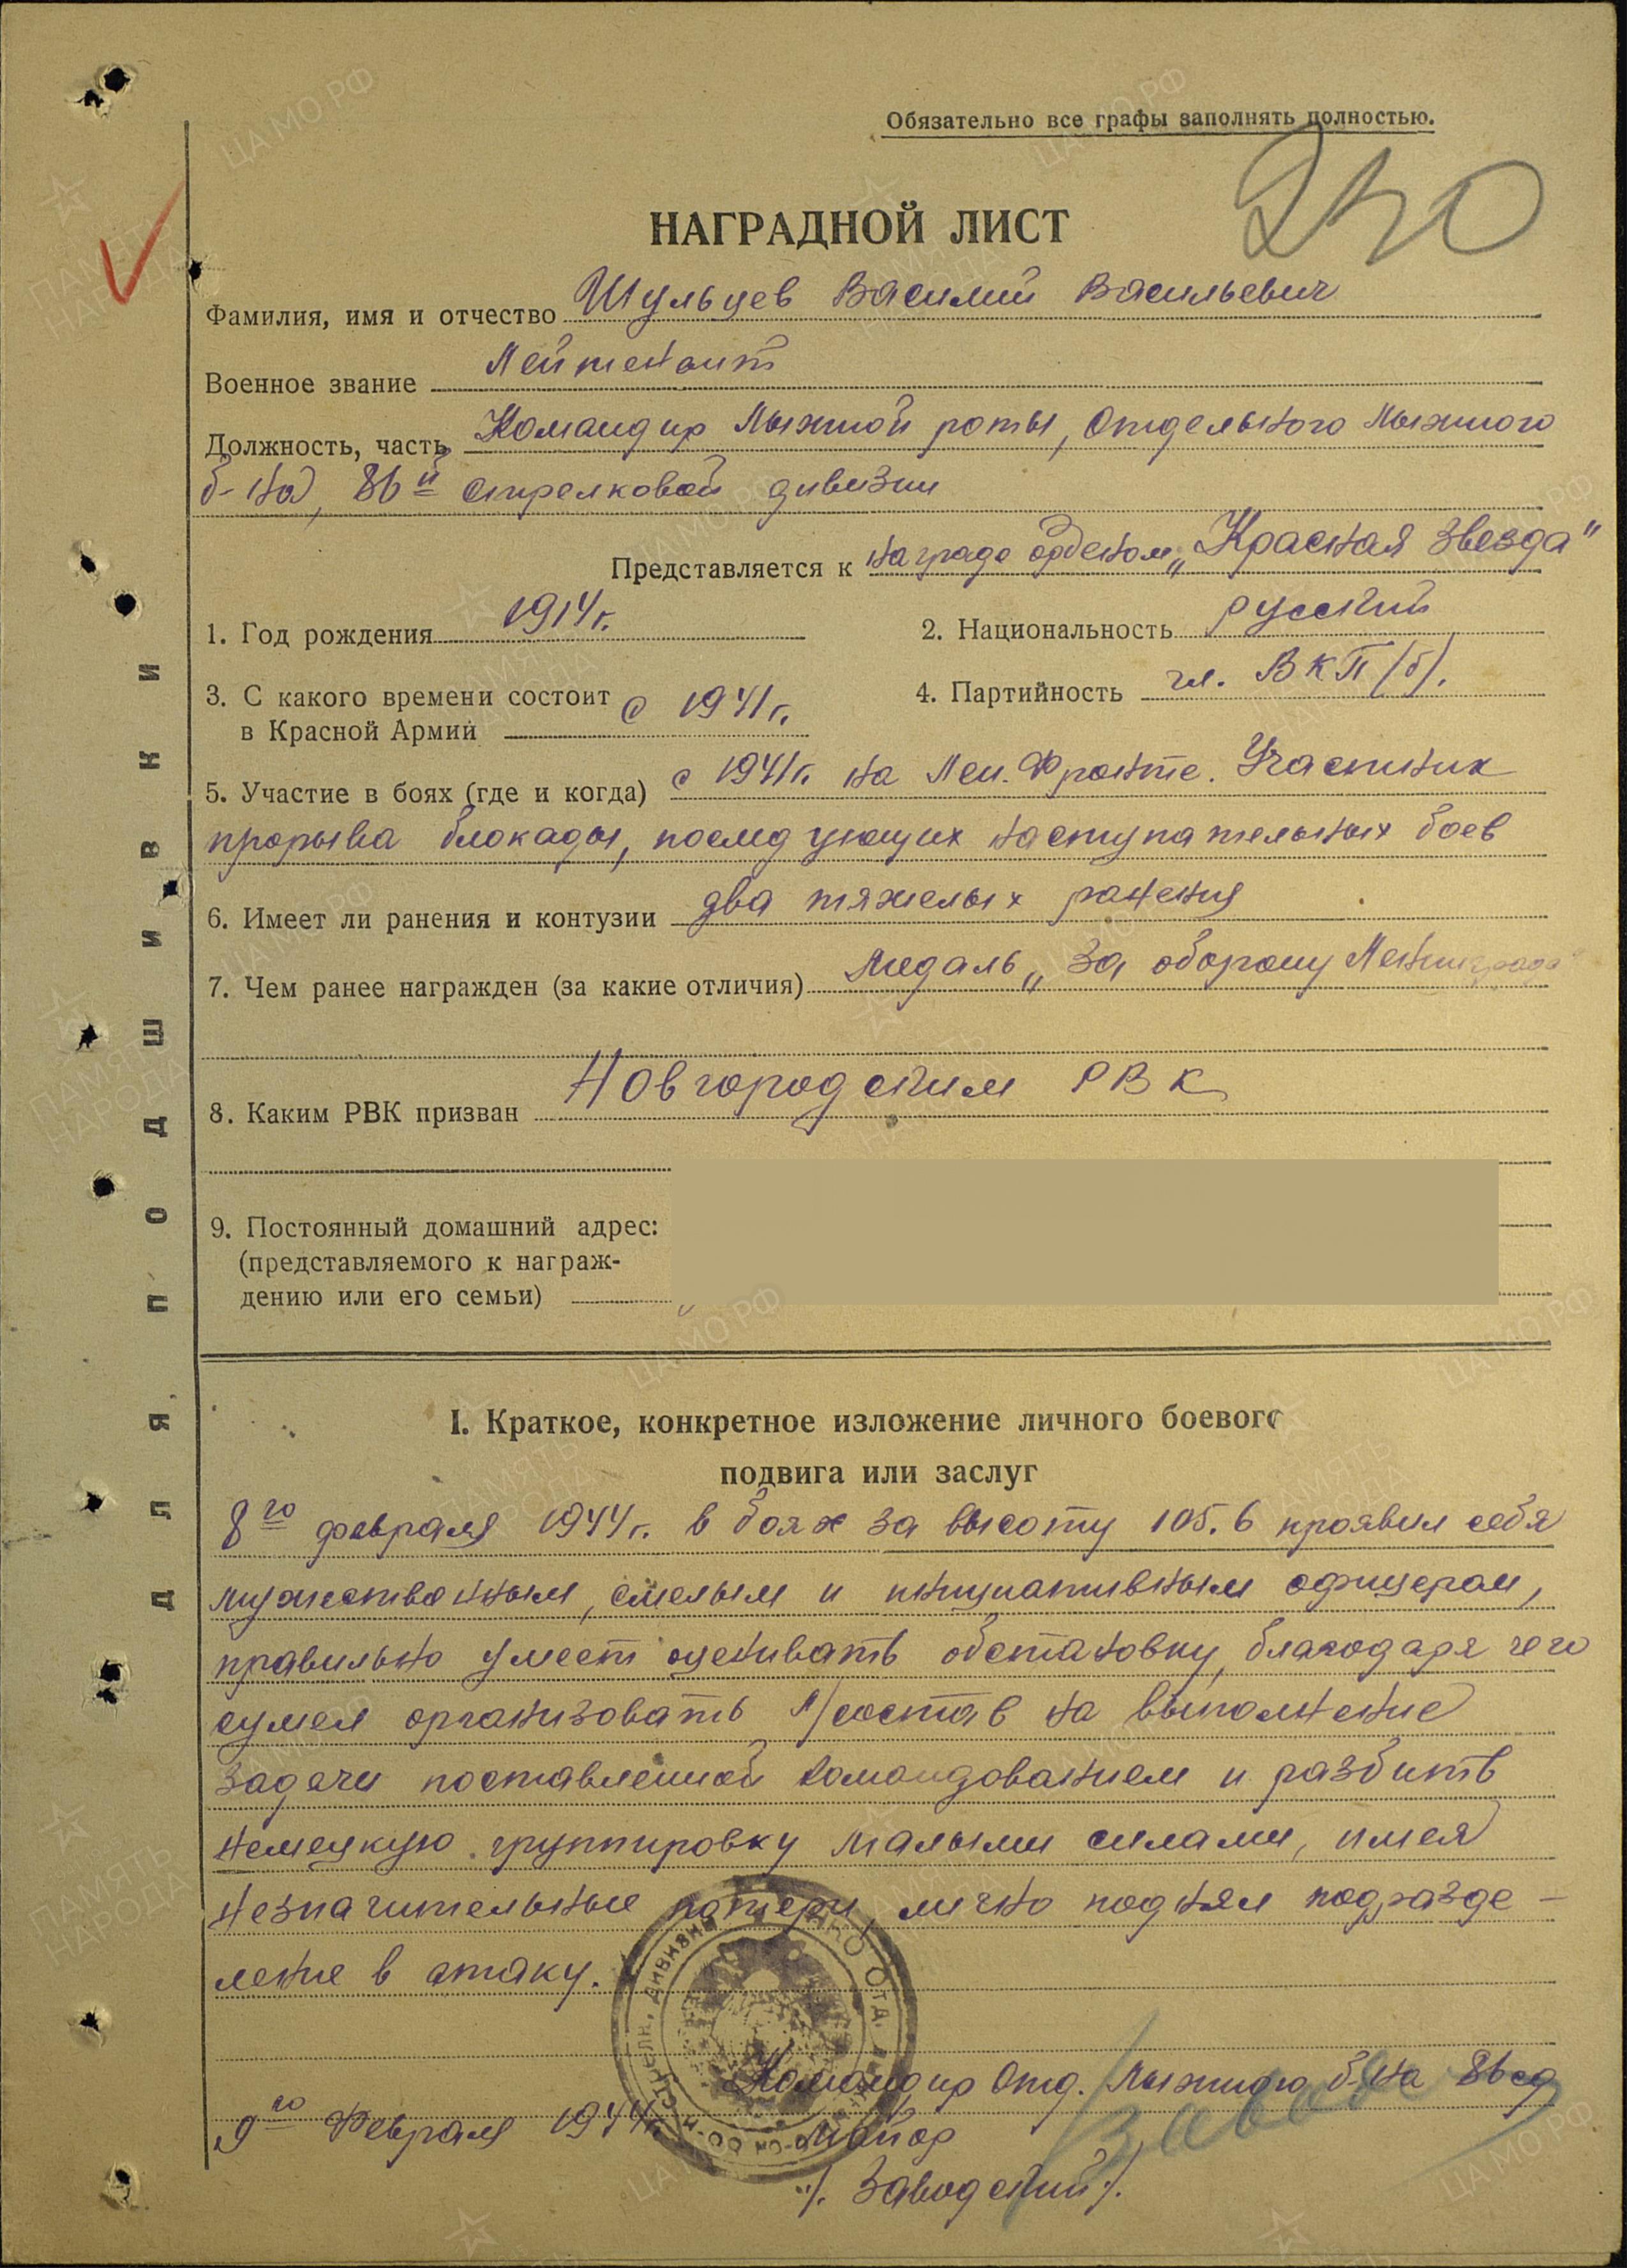 Обязательно все графы заполнять полностью.
250
НАГРАДНОЙ ЛИСТ
Фамилия, имя и отчество Шульцев Василий Васильевич
Военное звание Лейтенант
Должность, часть Командир Лыжной роты, Отдельного Лыжного
б-на, 86й стрелковой дивизии
Представляется к награде орденом „Красная звезда"
1. Год рождения 1914г.
2. Национальность русский
3. С какого времени состоит
в Красной Армии с 1941г.
4. Партийность чл. ВКП/б/.
5. Участие в боях (где и когда) с 1941г. на Лен. Фронте. Участник
прорыва блокады, последующих наступательных боев
6. Имеет ли ранения и контузии два тяжелых ранения
7. Чем ранее награжден (за какие отличия) Медаль „За оборону Ленинграда"
8. Каким РВК призван Новгородским РВК
9. Постоянный домашний адрес:
(представляемого к награж-
дению или его семьи)
Для подшивки
I. Краткое, конкретное изложение личного боевого
подвига или заслуг
8го февраля 1944г. в боях за высоту 105.6 проявил себя
мужественным, смелым и инициативным офицером,
правильно умеет оценивать обстановку, благодаря чего
сумел организовать л/состав на выполнение
задачи поставленной командованием и разбить
немецкую группировку малыми силами, имея
незначительные потери, лично поднял подразде-
ление в атаку.
Командир Отд. Лыжного б-на 86сд
9го Февраля 1944г. Майор
/Заводский/.
ЦАМО РФ
ПАМЯТЬ НАРОДА